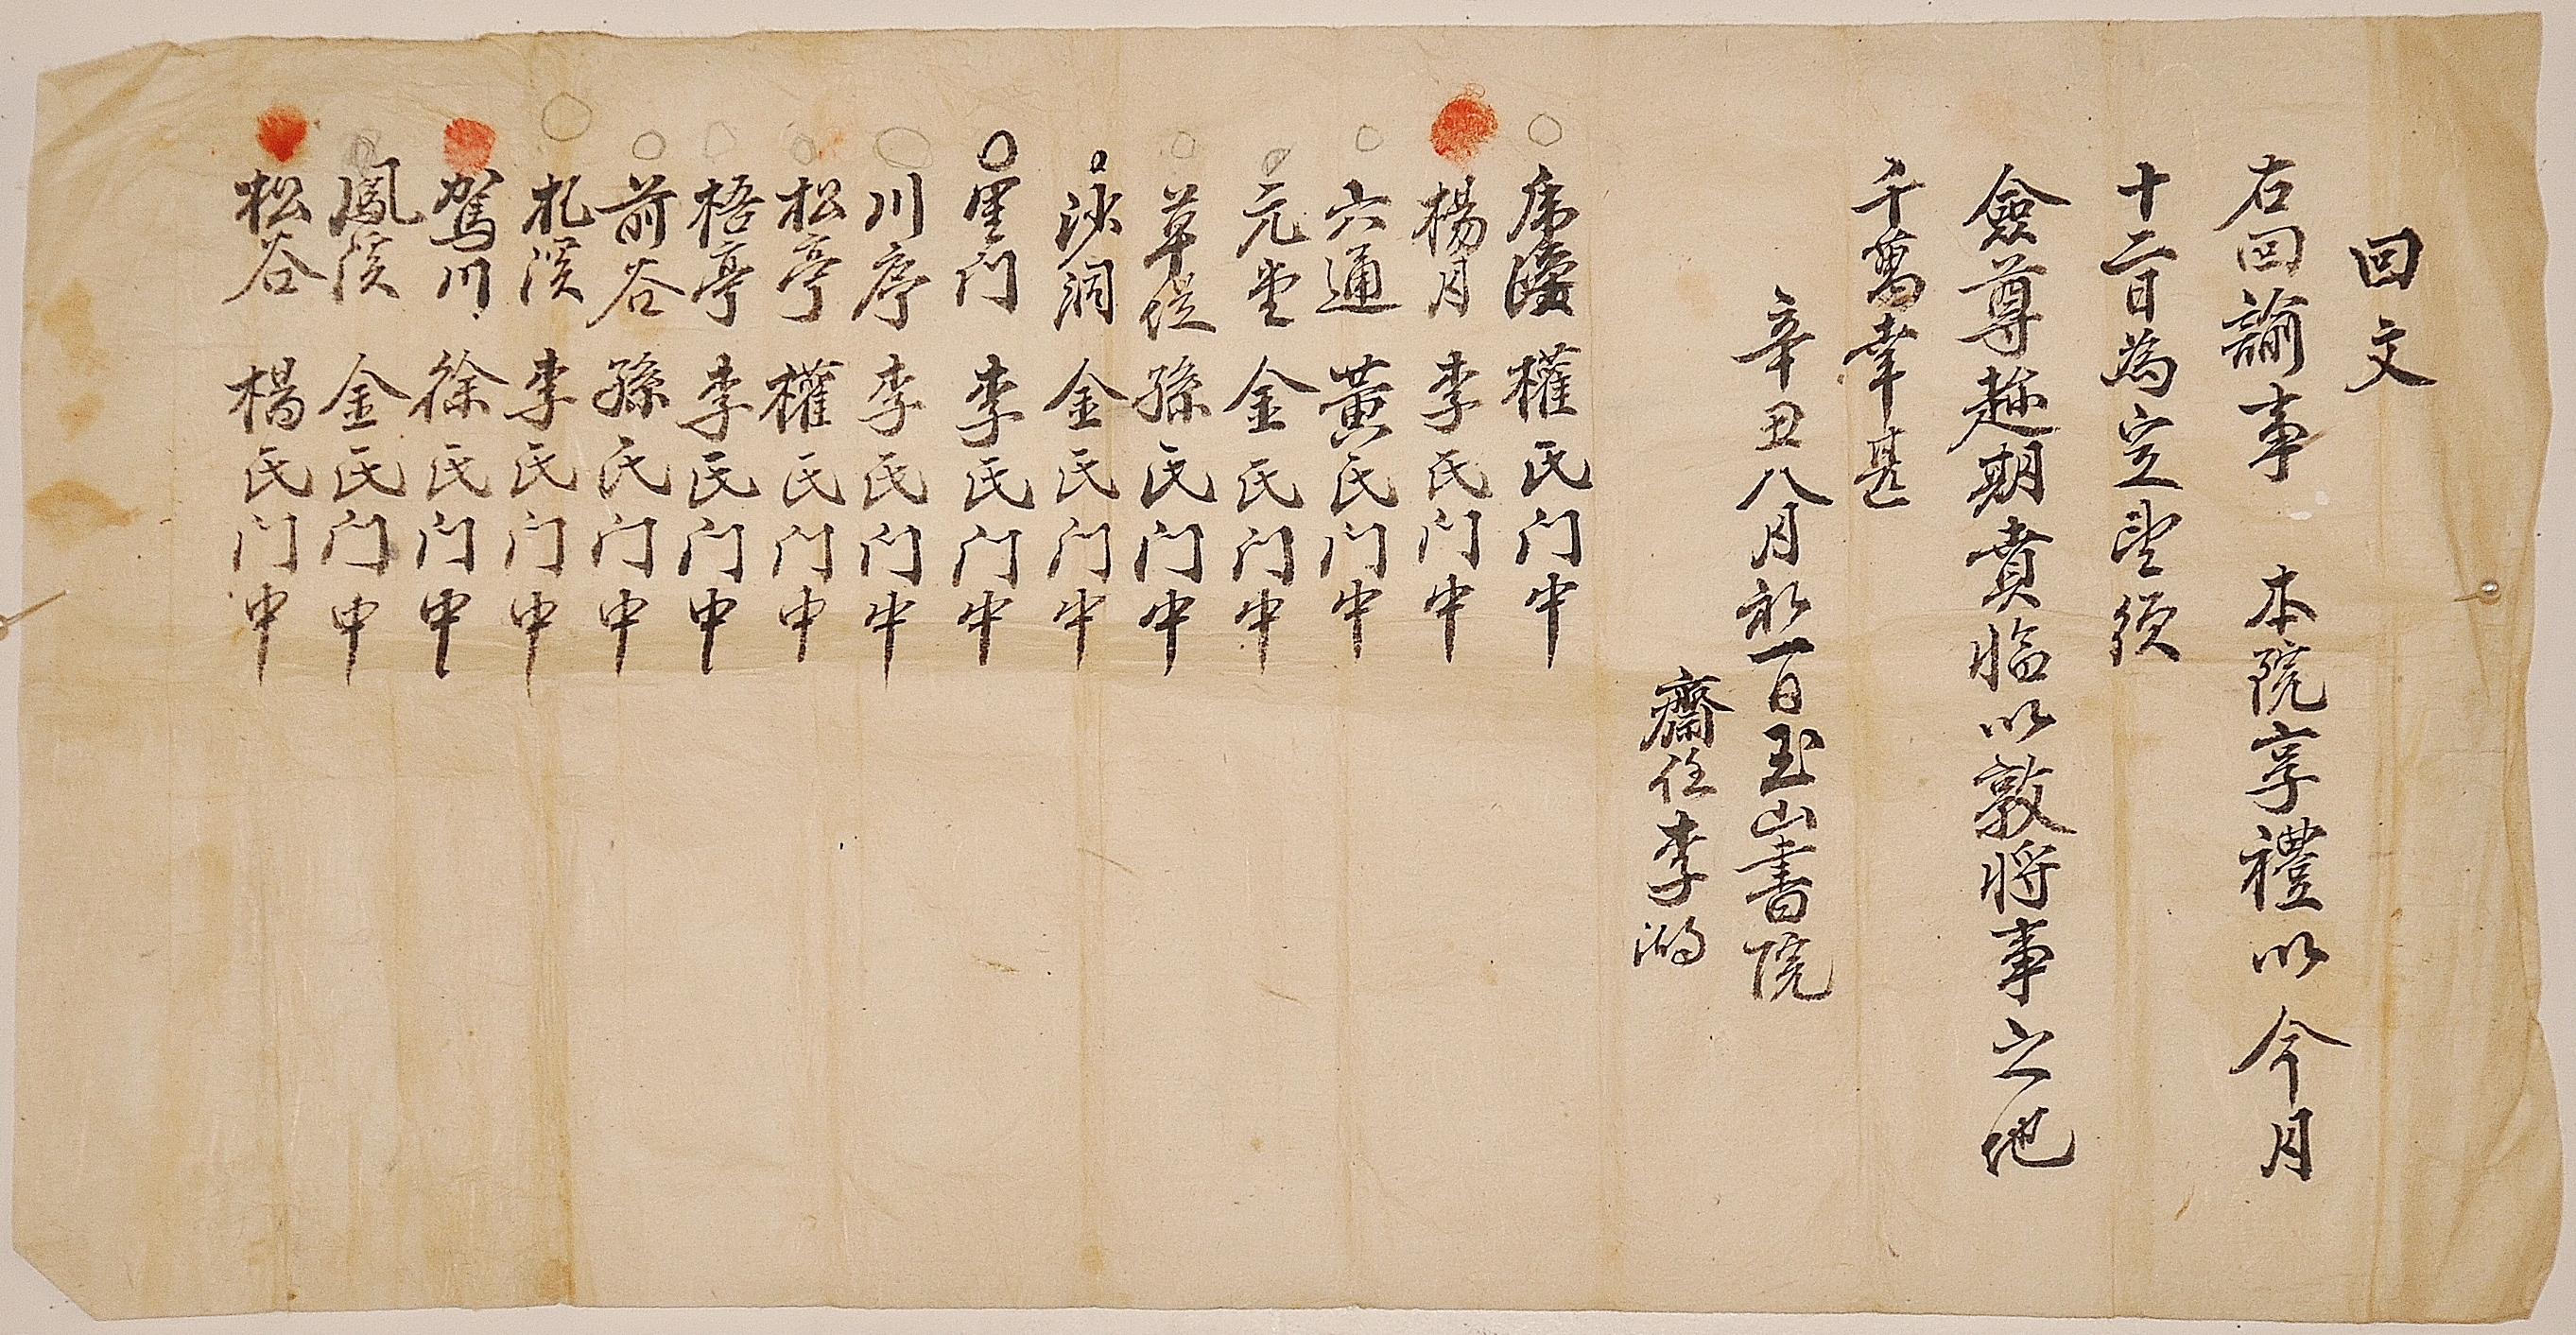 回文
右回諭事 本院享禮以今月
十二日為定望須
僉尊趁期賁臨以敦將事之地
千萬幸甚
辛丑八月初一日玉山書院
齋任李
權氏门中
楊月 李氏门中
六通 黃氏门中
元堂 金氏门中
草 孫氏门中
沙洞 金氏门中
里门 李氏门中
川序 李氏门中
松亭 權氏门中
梧亭 李氏门中
前谷 孫氏门中
札溪 李氏门中
鴐川 徐氏门中
鳳溪 金氏门中
松谷 楊氏门中